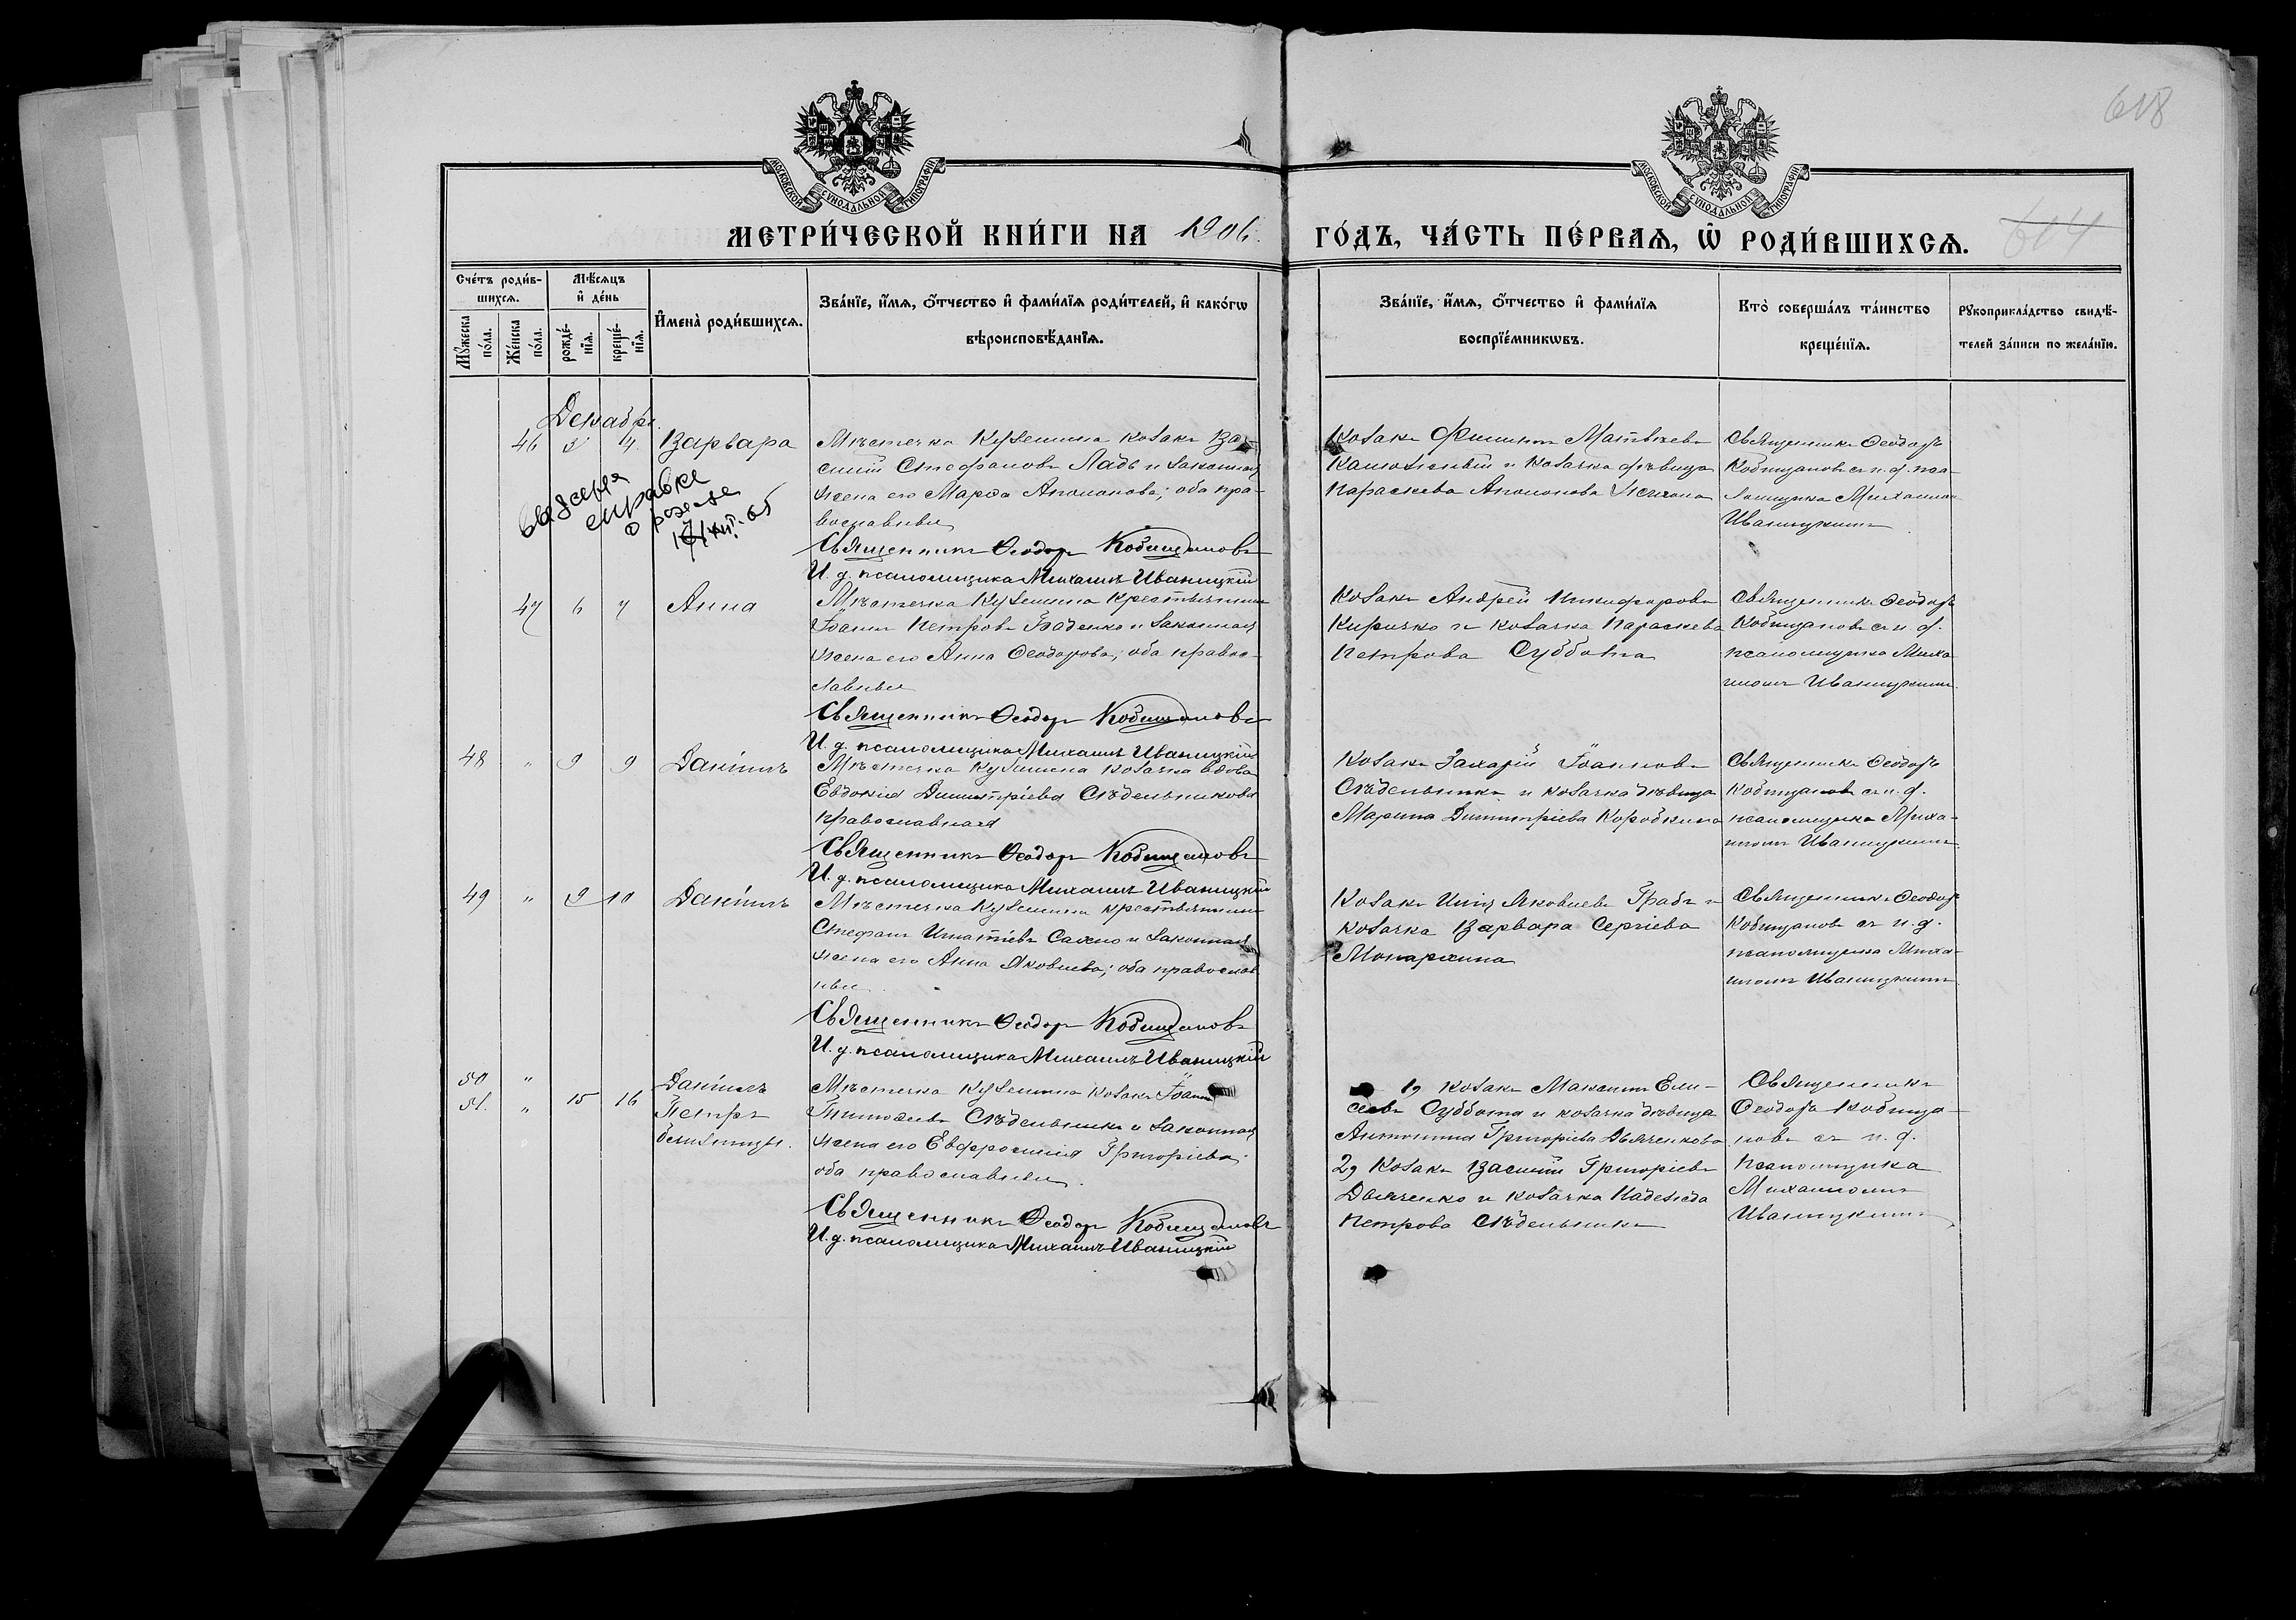 618
МОСКОВСКОЙ СУНОДАЛЬНОЙ ТИПОГРАФІИ
МОСКОВСКОЙ СУНОДАЛЬНОЙ ТИПОГРАФІИ
МЕТРИ́ЧЕСКОЙ КНИ́ГИ НА 1906.
ГО́ДЪ, ЧА́СТЬ ПЕ́РВАѦ, Ѿ РОДИ́ВШИХСѦ.
614
Сче́тъ роди́в-
шихсѧ.
Мꙋ́жеска
по́ла.
Же́нска
по́ла.
Мѣ́сѧцъ
и҆ де́нь
рожде́-
нїѧ.
креще́-
нїѧ.
И҆мена̀ роди́вшихсѧ.
Зва́нїе, и҆́мѧ, ѻ҆́тчество и҆ фами́лїѧ роди́телей, и҆ како́гѡ
вѣроисповѣ́данїѧ.
Зва́нїе, и҆́мѧ, ѻ҆́тчество и҆ фами́лїѧ
воспрїе́мникѡвъ.
Кто̀ соверша́лъ та́инство
креще́нїѧ.
Рꙋкоприкла́дство свидѣ́-
телей за́писи по жела́нїю.
Декабрь.
46 3 4. Варвара
выдсена
справка
о рожде
17/XII-65
Мѣстечка Куземина козакъ Ва-
силій Стефановъ Лядъ и законная
жена его Марѳа ; оба пра-
вославные
Священникъ Ѳеодоръ Кобищановъ
И. д. псаломщика Михаилъ Иваницкій
Козакъ Филиппъ Матвѣевъ
и козачка дѣвица
Параскева
Священникъ Ѳеодоръ
Кобищановъ съ и. д. пса-
ломщика Михаиломъ
Иваницкимъ
47 6 7 Анна
Мѣстечка Куземина крестьянинъ
Іоаннъ Петровъ и законная
жена его Анна Ѳеодорова; оба правос-
лавные
Священникъ Ѳеодоръ Кобищановъ
И. д. псаломщика Михаилъ Иваницкій
Козакъ Андрей Никифоровъ
Киричко и козачка Параскева
Петрова Суббота
Священникъ Ѳеодоръ
Кобищановъ съ и. д.
псаломщика Миха-
иломъ Иваницкимъ.
48 " 9 9 Даніилъ
Мѣстечка Куземина козачка вдова
Евдокія Димитріева Слѣдельникова
православная
Священникъ Ѳеодоръ Кобищановъ
И. д. псаломщика Михаилъ Иваницкій
Козакъ Захарій Іоанновъ
Слѣдельникъ и козачка дѣвица
Марина Димитріева Коробкина
Священникъ Ѳеодоръ
Кобищановъ съ и. д.
псаломщика Миха-
иломъ Иваницкимъ
49 " 9 10 Даніилъ
Мѣстечка Куземина крестьянинъ
Стефанъ Игнатіевъ Сахно и законная
жена его Анна Яковлева; оба православ-
ные.
Священникъ Ѳеодоръ Кобищановъ
И. д. псаломщика Михаилъ Иваницкій
Козакъ Яковлевъ Грабъ и
козачка Варвара Сергіева
Монархина
Священникъ Ѳеодоръ
Кобищановъ съ и. д.
псаломщика Миха-
иломъ Иваницкимъ
50 " Даніилъ
51. " 15 16 Петръ
близнецы.
Мѣстечка Куземина козакъ Іоаннъ
Тимоѳеевъ Слѣдельникъ и законная
жена его Евфросинія Григоріева;
оба православные.
Священникъ Ѳеодоръ Кобищановъ
И. д. псаломщика Михаилъ Иваницкій
1, Козакъ Максимъ Ели-
сеевъ Суббота и козачка дѣвица
Антонина Григоріева Дьяченкова
2, Козакъ Василій Григоріевъ
Дьяченко и козачка Надежда
Петрова Слѣдельникъ
Священникъ
Ѳеодоръ Кобища-
новъ съ и. д.
Псаломщика
Михаиломъ
Иваницкимъ